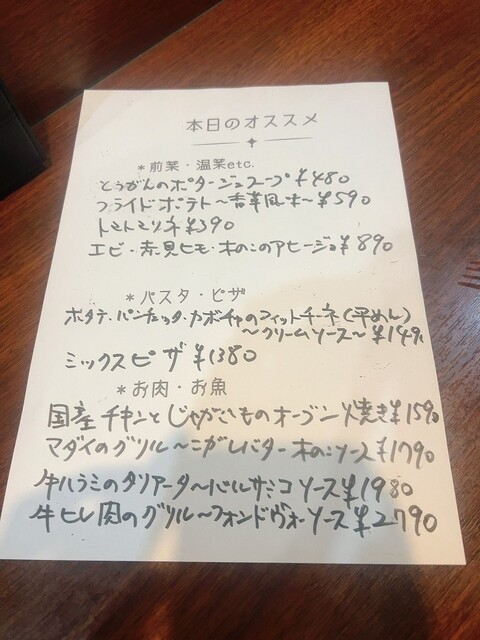 本日のオススメ
*前菜・温菜etc.
とうがんのポタージュスープ¥480
フライドポテト〜青草風味〜¥590
トマトマリネ¥390
エビ・赤貝ヒモ・木のこのアヒージョ¥890
*パスタ・ピザ
ホタテ・パンチェッタ・カボチャのフィットチーネ(平めん)
〜クリームソース〜¥149
ミックスピザ¥1380
*お肉・お魚
国産チキンとじゃがいものオーブン焼き¥1590
マダイのグリル〜こがしバター木のこソース¥1790
牛ハラミのタリアータ〜バルサミコソース¥1980
牛ヒレ肉のグリル〜フォンドヴォーソース¥2790